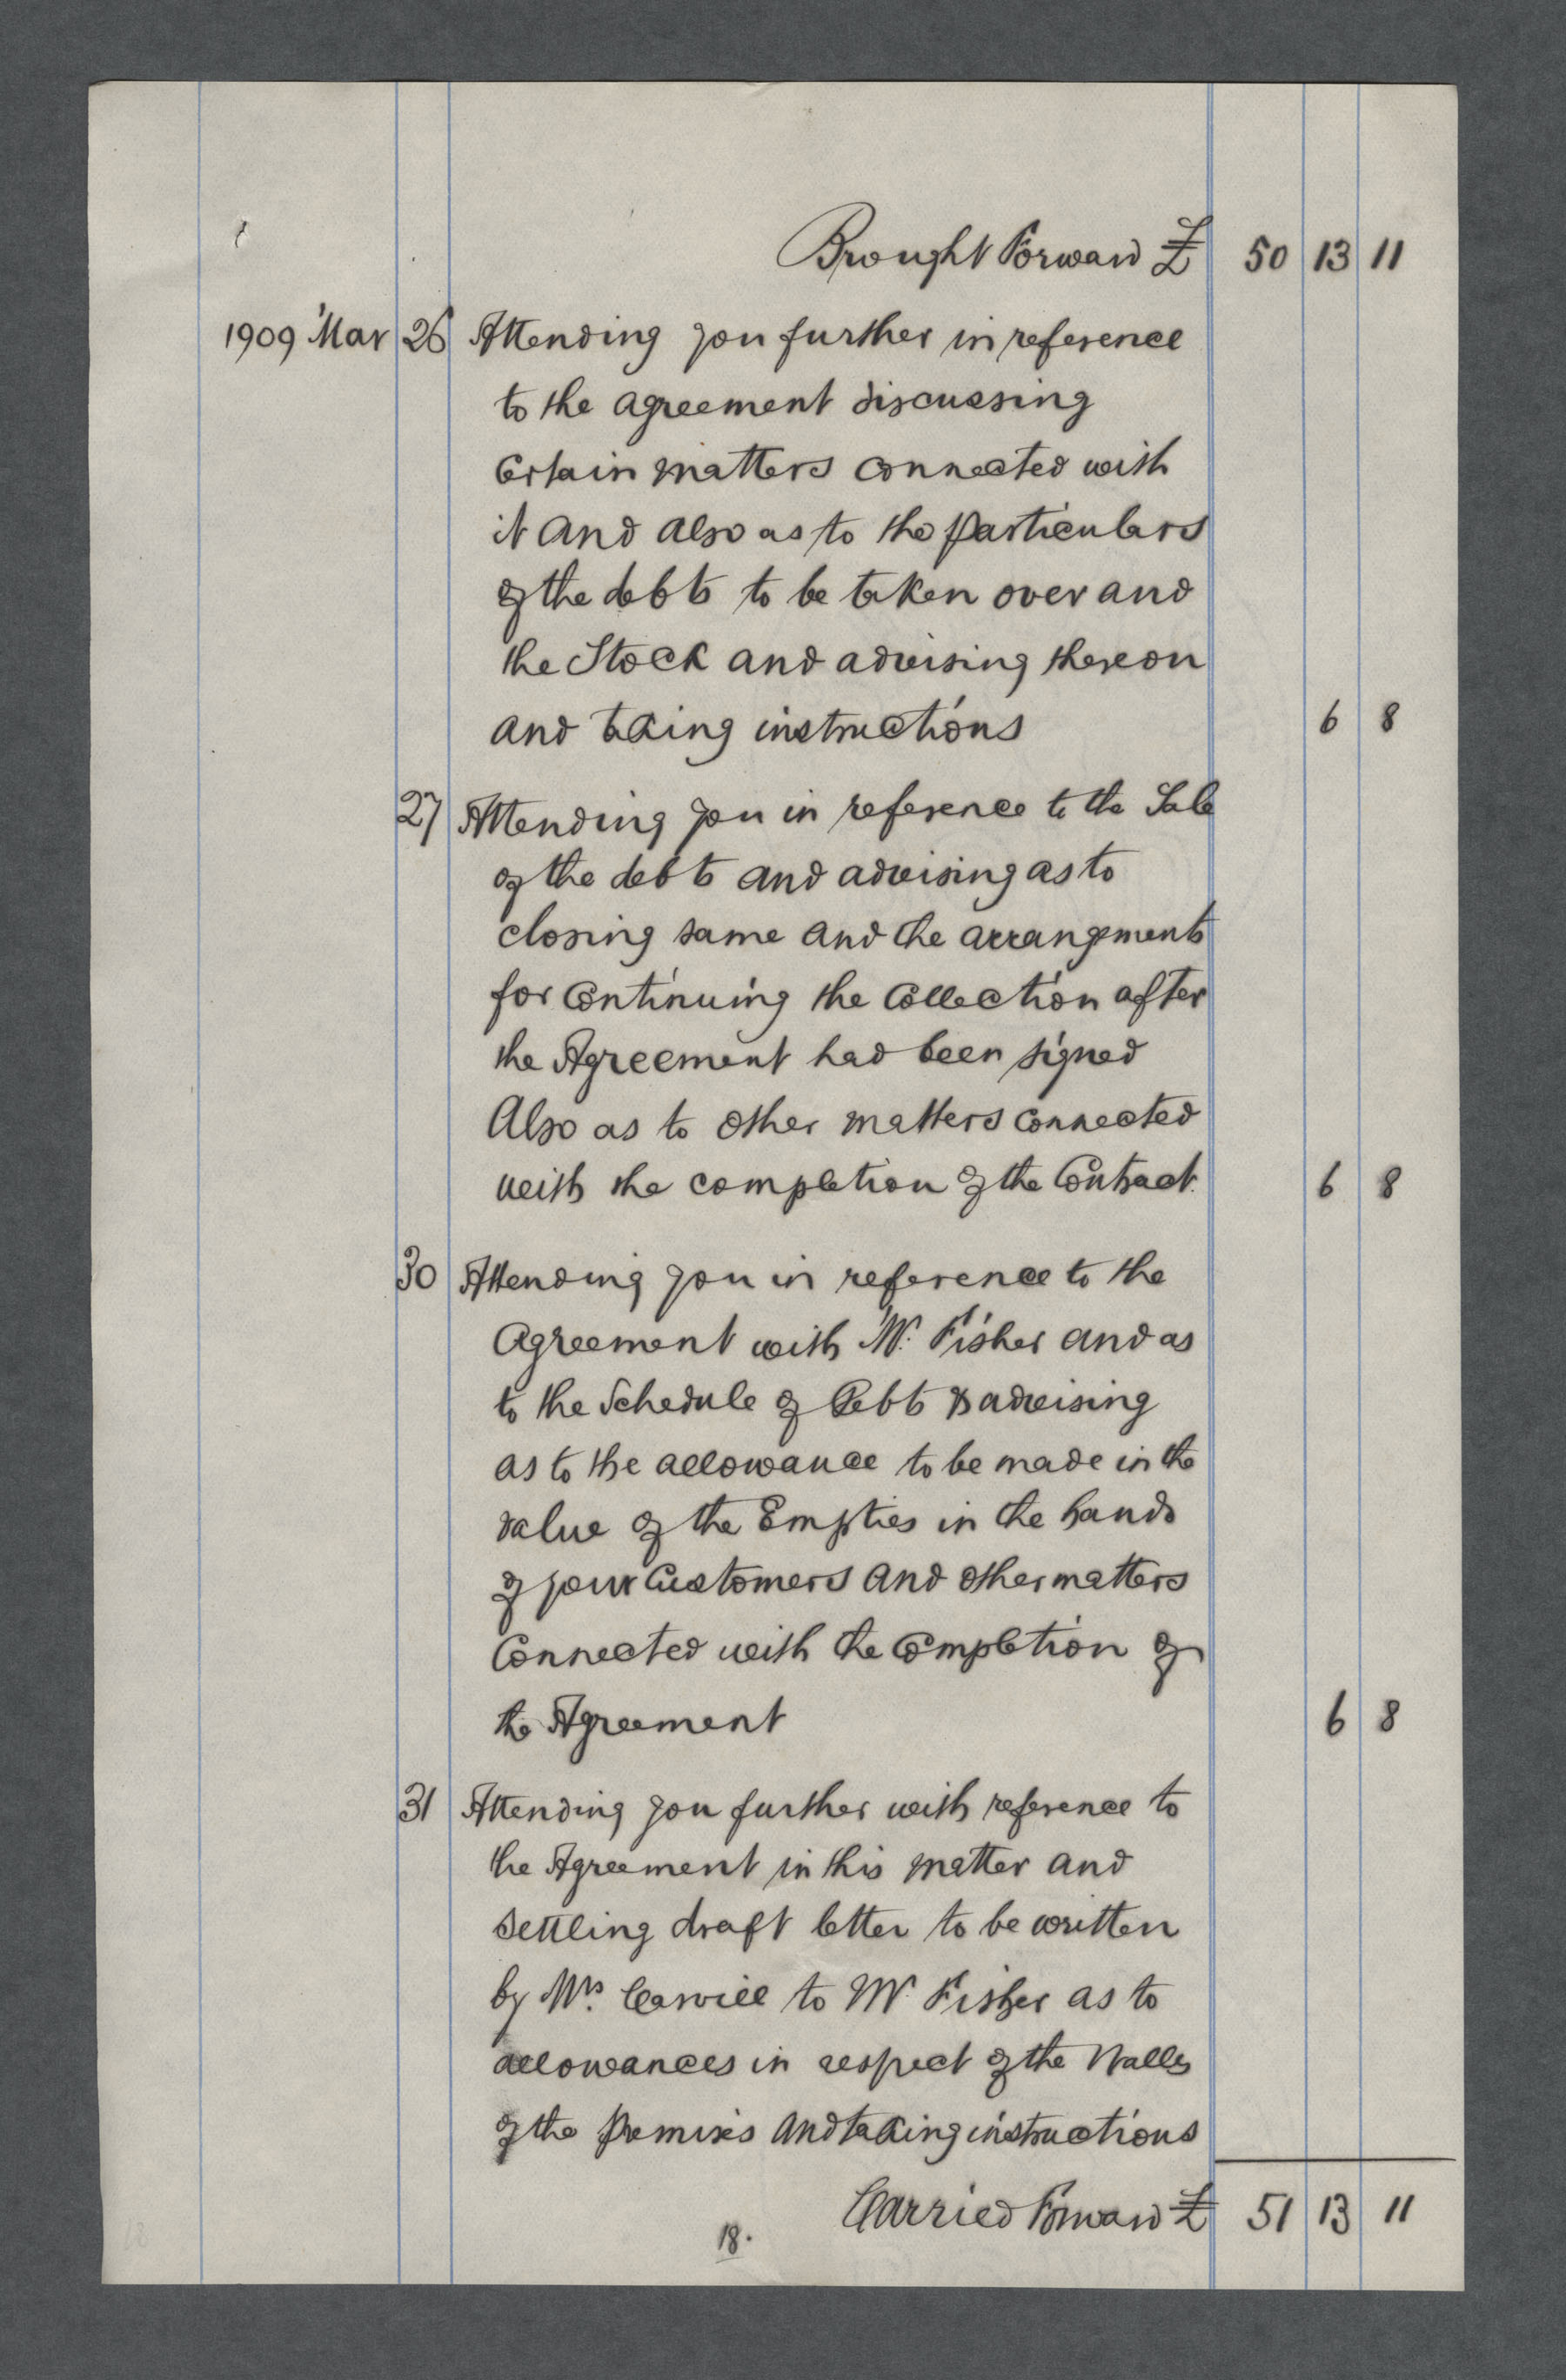 Brought Forward £ 50 13 11
1909 Mar 26 Attending you further in reference
to the agreement discussing
certain matters connected with
it and also as to the particulars
of the debts to be taken over and
the Stock and advising thereon
and taking instructions 6 8
27 Attending you in reference to the Sale
of the debts and advising as to
closing same and the arrangements
for continuing the collection after
the Agreement had been signed
Also as to other matters connected
with the completion of the Contract. 6 8
30 Attending you in reference to the
Agreement with Mr. Fisher and as
to the Schedule of Debts & advising
as to the allowance to be made in the
value of the Empties in the hands
of your Customers and other matters
connected with the completion of
the Agreement 6 8
31 Attending you further with reference to
the Agreement in this matter and
settling draft letter to be written
by Mrs. to Mr Fisher as to
allowances in respect of the Walls
of the premises and taking instructions
Carried Forward £ 51 13 11
18.